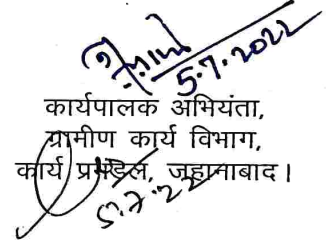 5.7.2022
कार्यपालक अभियंता,
ग्रामीण कार्य विभाग,
कार्य प्रमंडल, जहानाबाद।
5.7.22